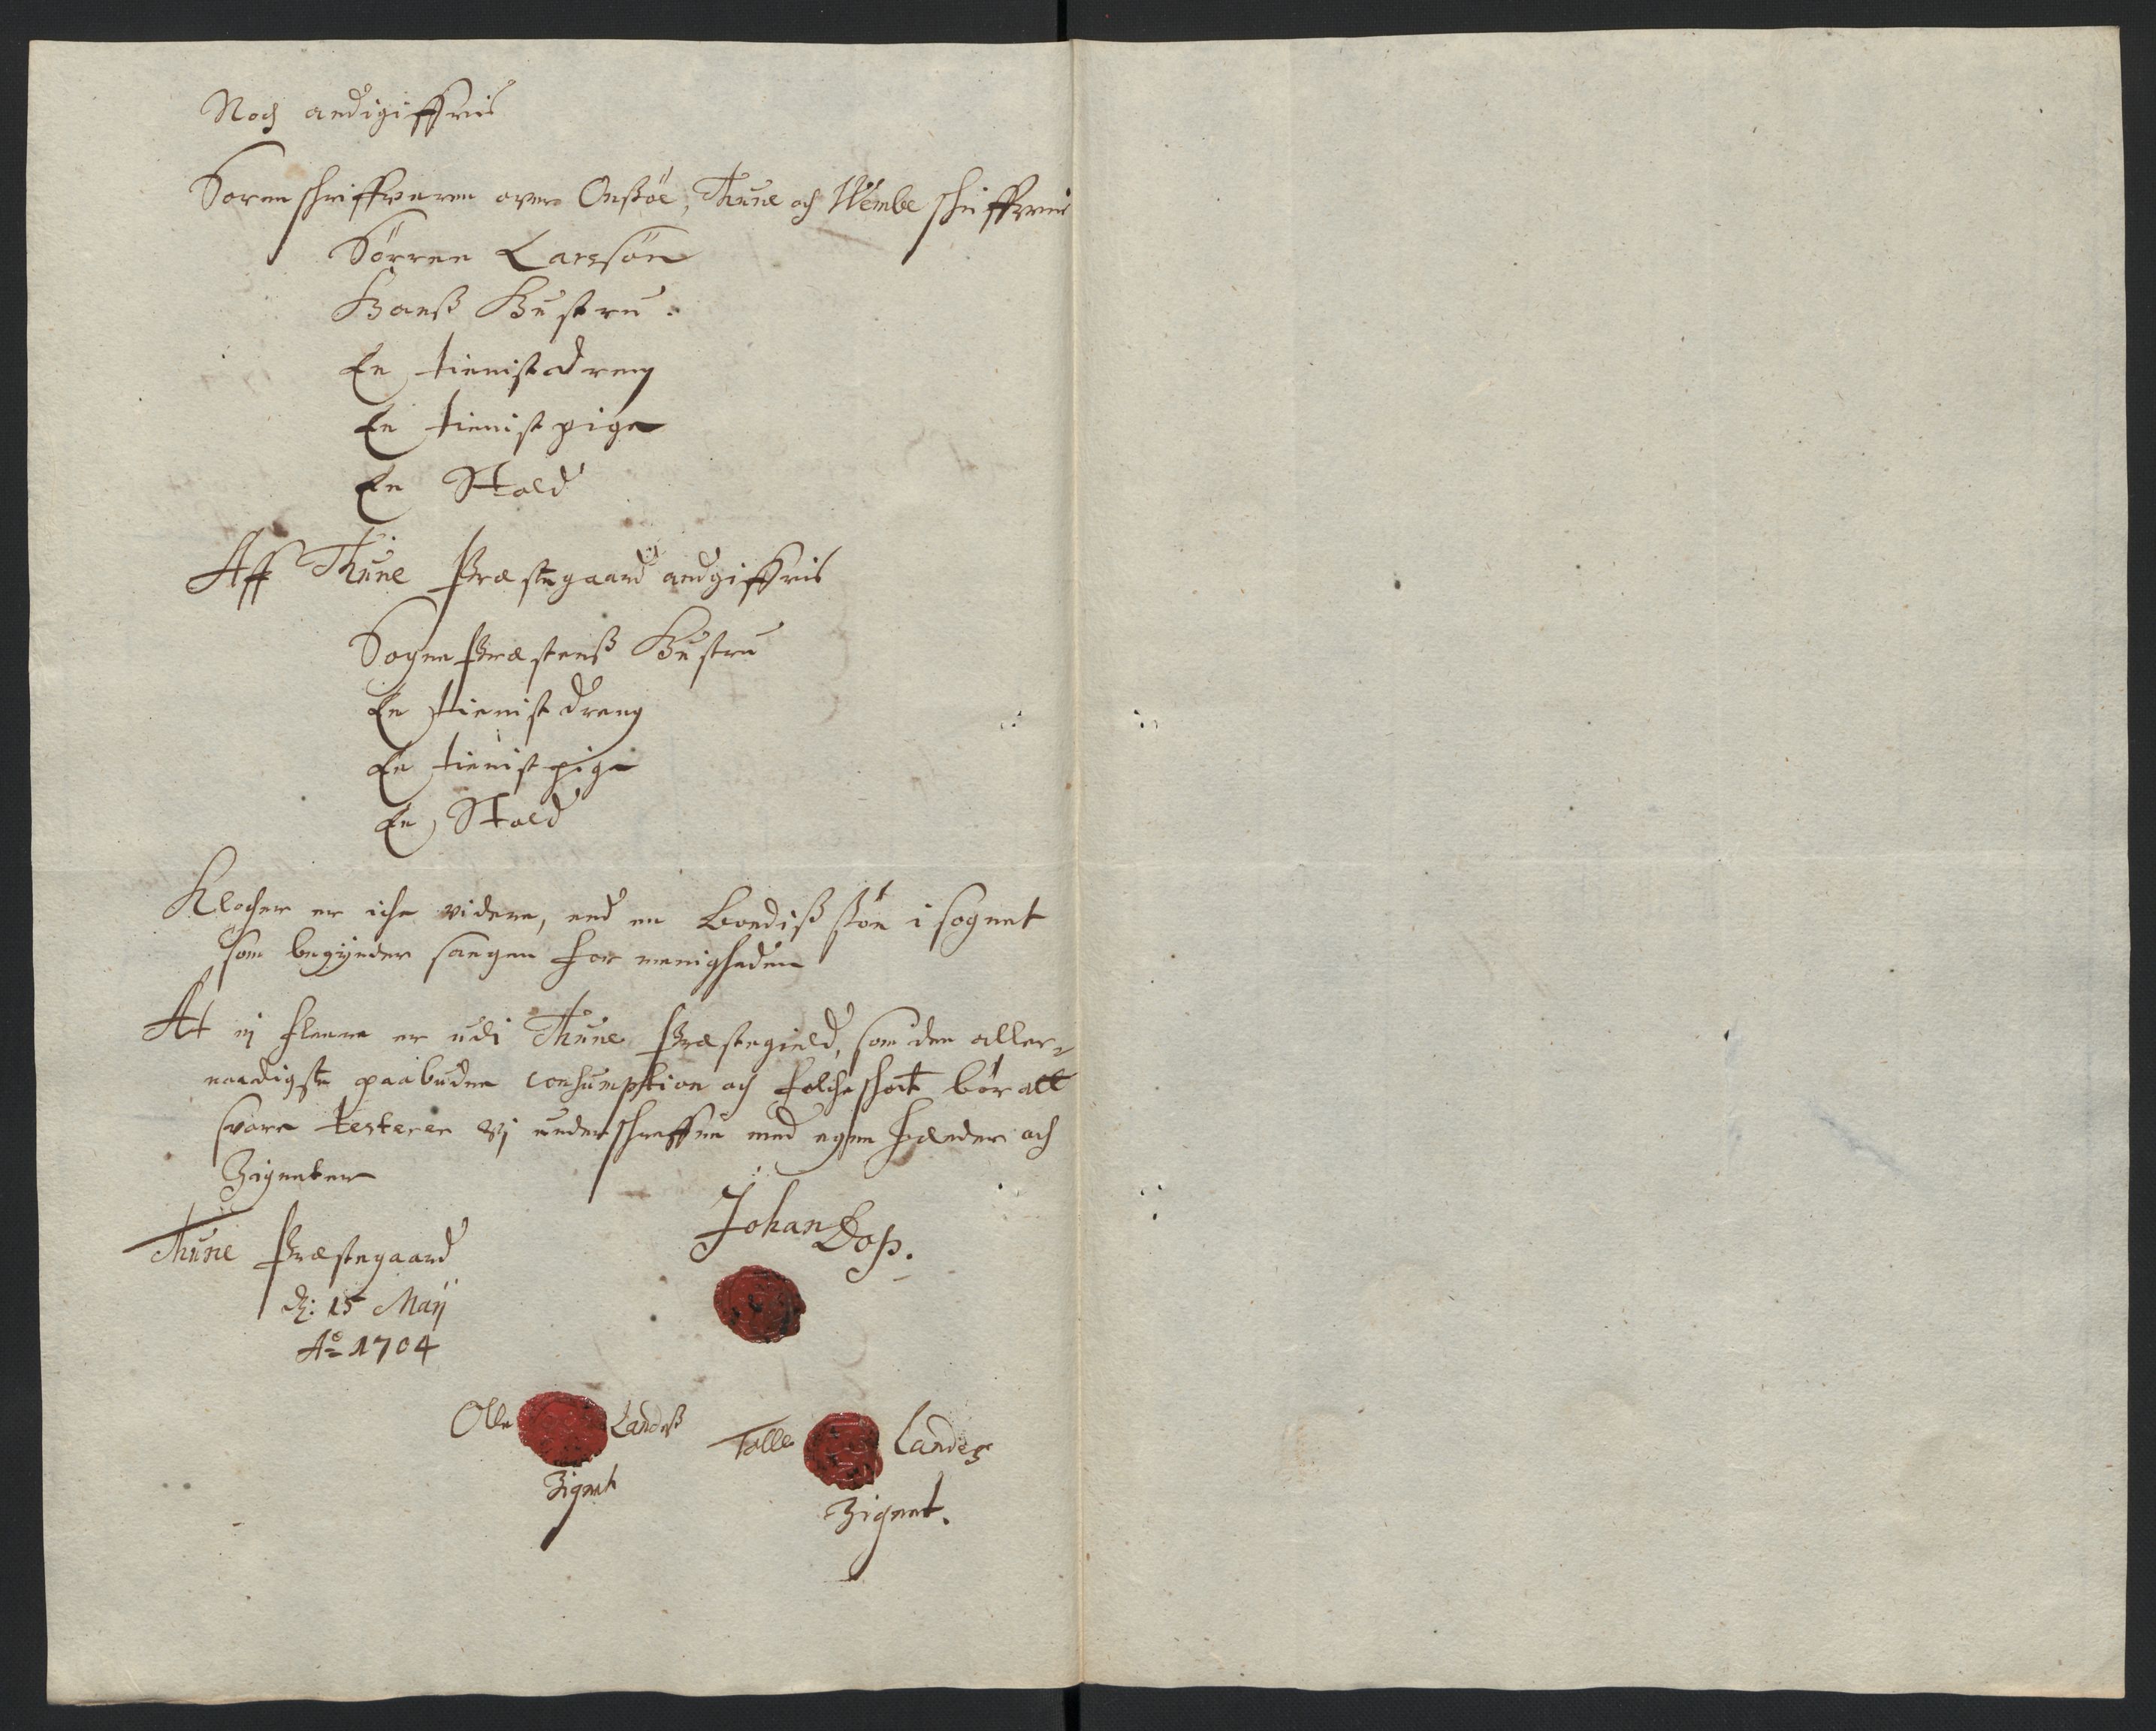 Noch andigiffvis
Sorenschriffveren over Onsøe, Thune och Wembe schiffreeis
Sörren Larssön
Hanß Hustru.
En tienistdreng
En tienist pige
En Stald
Aff Thune Præstegaard andgiffvis
Sogne Præstenß Hustru
En tienist dreng
En tienist pige
En Stald
Klocher er iche videre, end en Bondiß søn i sognet
som begynder sangen for menigheden
At ej fleere er udi Thune Præstegield, som den aller-
naadigste paabudne consumption og folcheschat bør att
svare testerer Vj underschreffne med egne hænder och
Zigneter
Thune Præstegaard
d: 15 Maÿ
Ao 1704
Johan Doss.
Olle Landeß
Zignet
Tolle Landes
Zignet.